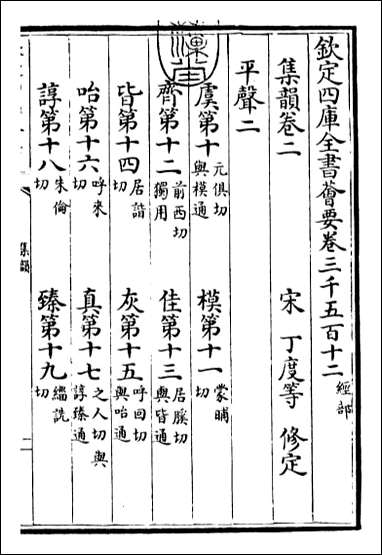 欽定四庫全書薈要卷三千五百十二 經部
集韻卷二
宋 丁度等 修定
平聲二
虞第十 元俱切與模通
模第十一 蒙晡切
齊第十二 前西切獨用
佳第十三 居膎切與皆通
皆第十四 居諧切
灰第十五 呼回切與咍通
咍第十六 呼來切
真第十七 之人切與諄臻通
諄第十八 朱倫切
臻第十九 緇詵切
集韻
二